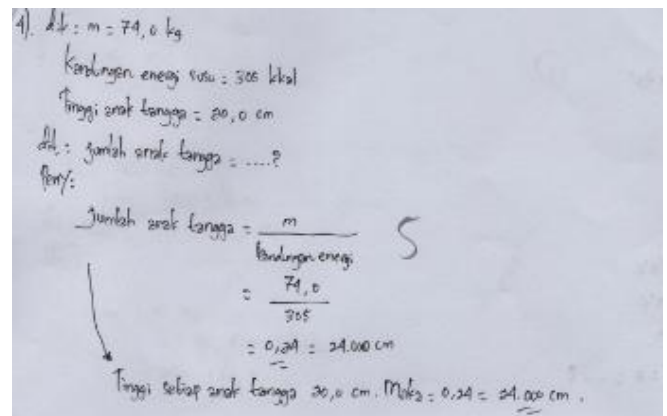 4). dik : m = 74,0 kg
Kandungan energi susu = 305 kkal
Tinggi anak tangga = 20,0 cm
dit : jumlah anak tangga = ....?
Peny:
Jumlah anak tangga = m / kandungan energi
5
= 74,0 / 305
= 0,24 = 24.000 cm
Tinggi setiap anak tangga 20,0 cm. Maka = 0,24 = 24.000 cm .